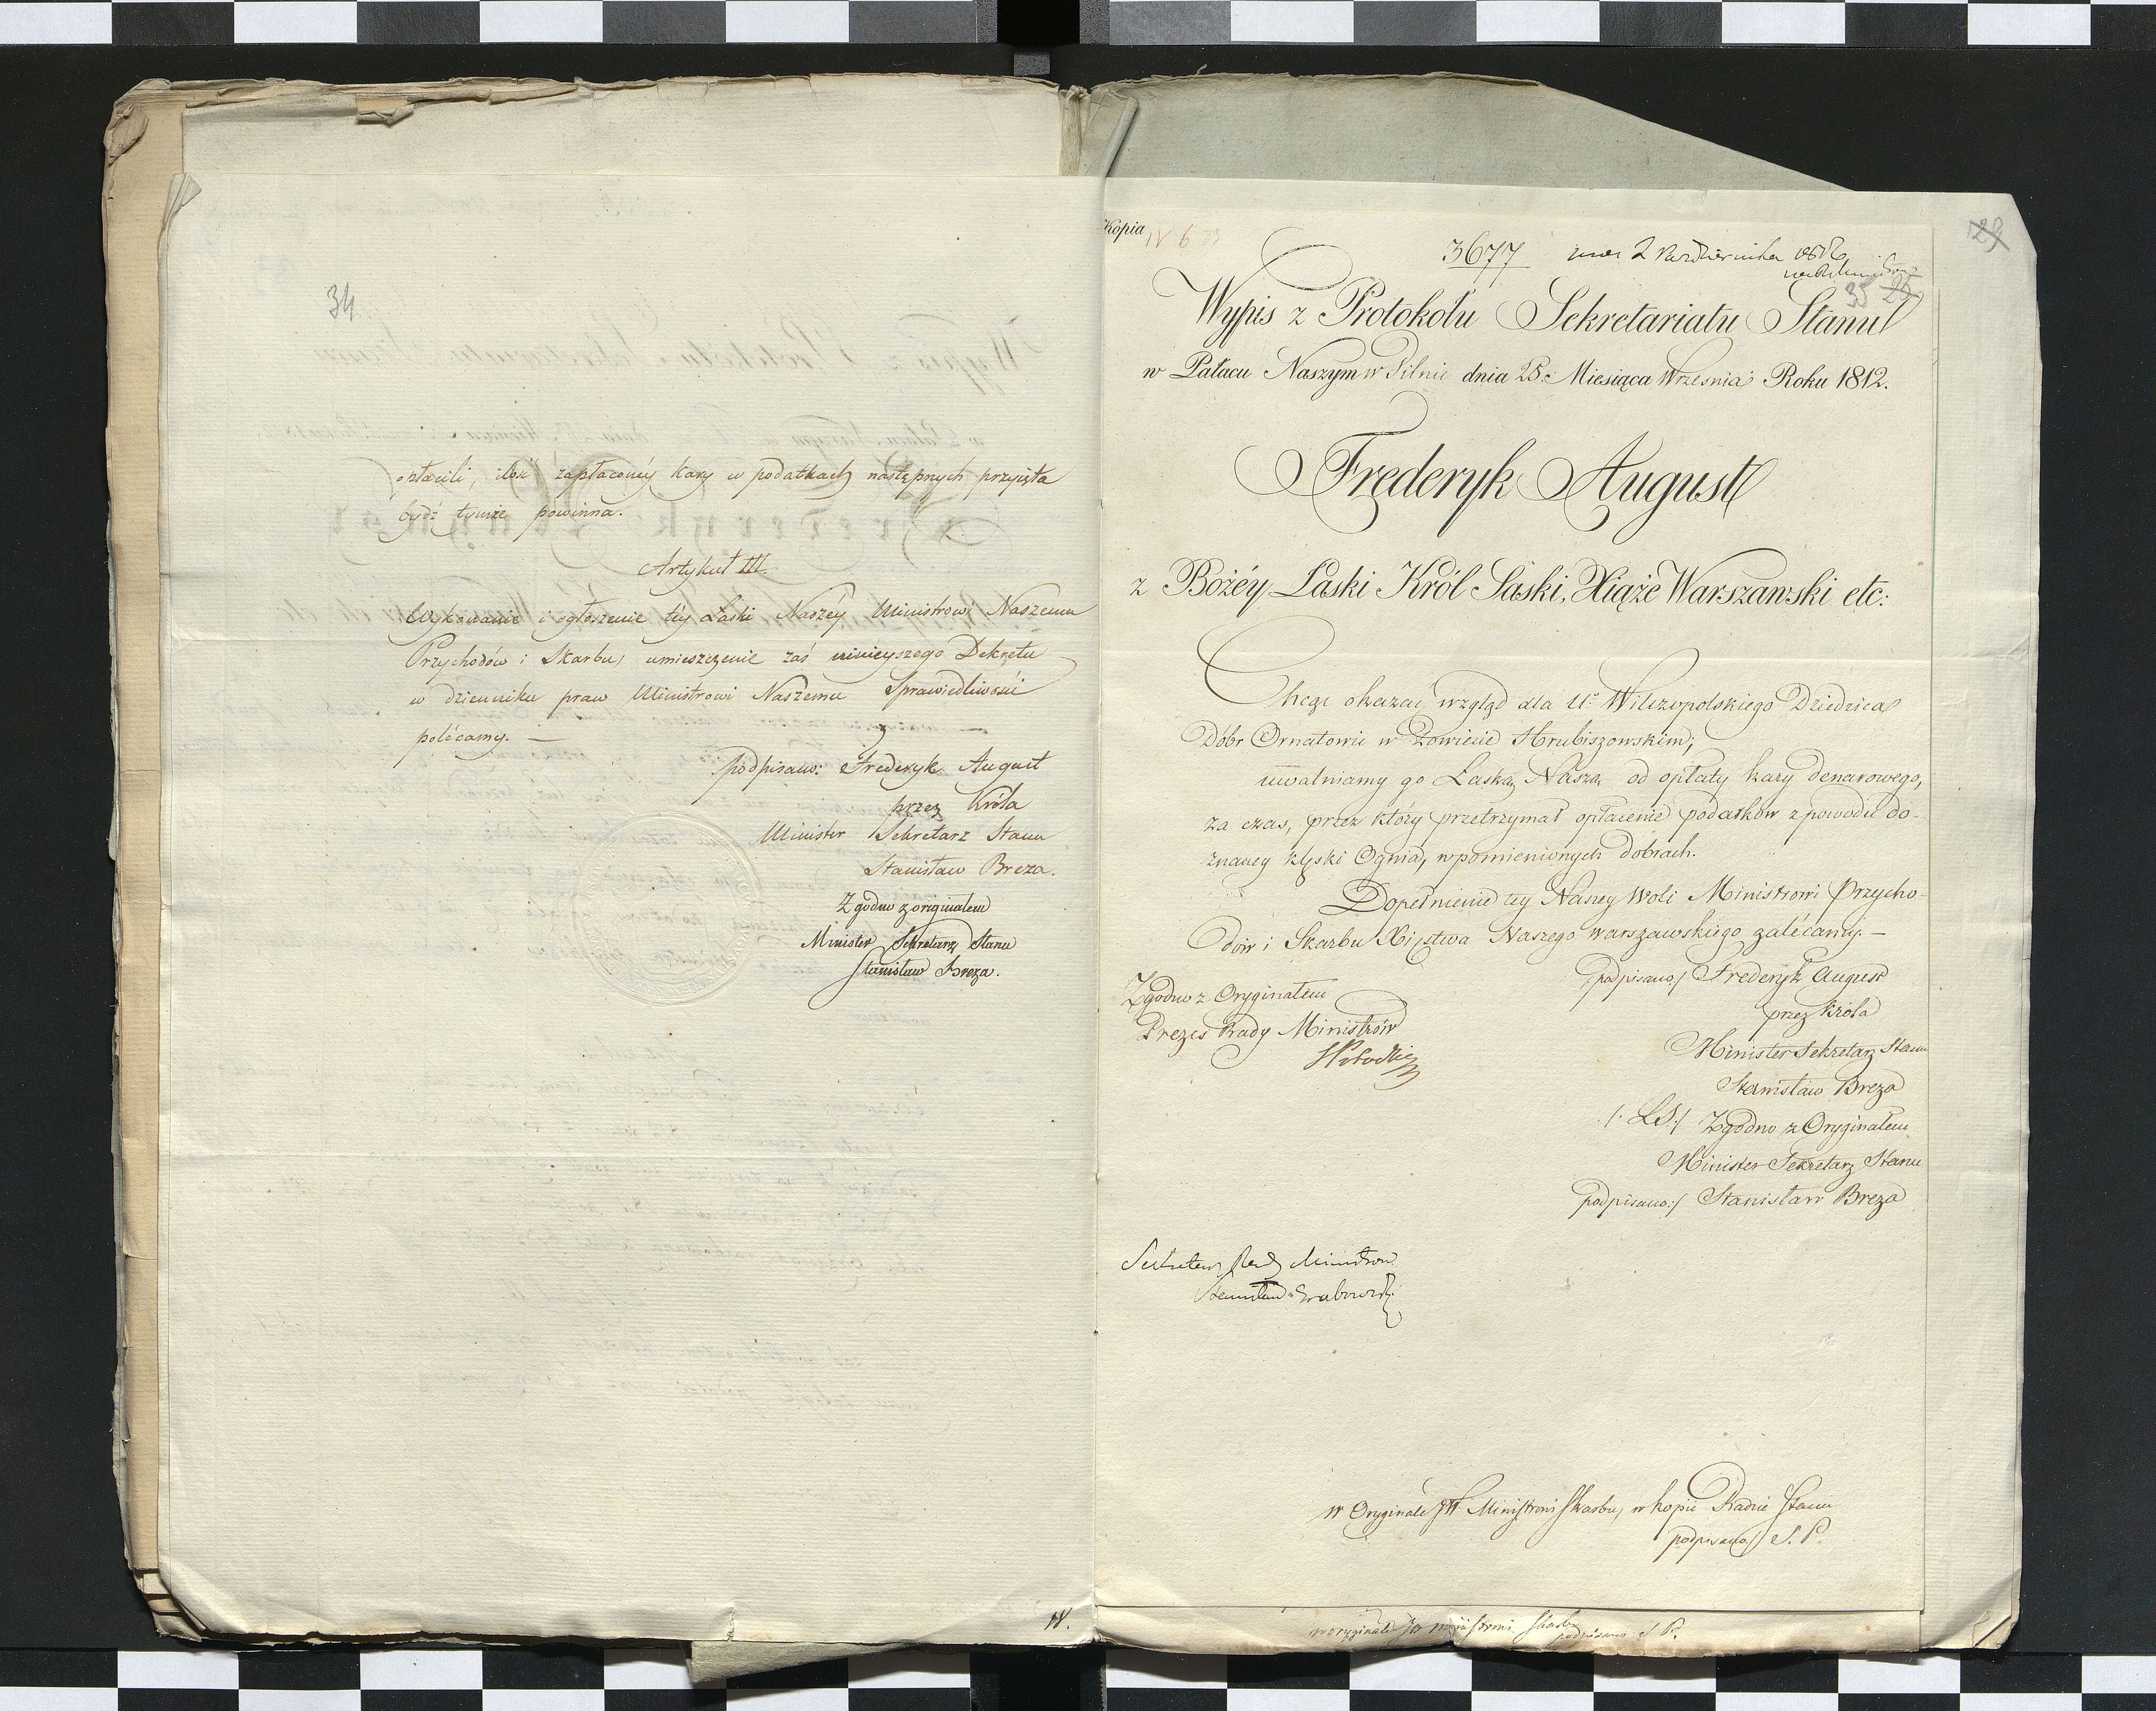 34
opłacili, ilość zapłaconéy kary w podatkach następnych przyięta
bydź tymże powinna.
Artykuł III.
Wykonanie i ogłoszenie téy Łaski Naszéy Ministrowi Naszemu
Przychodów i Skarbu, umieszczenie zaś ninieyszego Dekretu
w dzienniku praw Ministrowi Naszemu Sprawiedliwości
polécamy. —
podpisano: Frederyk August
przez Króla
Minister Sekretarz Stanu
Stanisław Breza.
Zgodno z originałem
Minister Sekretarz Stanu
Stanisław Breza.
Kopia
3677 2 Października 1812
29
35 25
Wypis z Protokołu Sekretariatu Stanu
w Pałacu Naszym w Pilnic dnia 25. Miesiąca Września Roku 1812.
Frederyk August
z Bożéy Łaski Król Saski, Xiąże Warszawski etc:
Chcąc okazać wzgląd dla Uo Wilczopolskiego Dziedzica
Dóbr Ornatowic w Powiecie Hrubiszowskim;
uwalniamy go Łaską Naszą od opłaty kary denarowego,
za czas, przez który przetrzymał opłacenie podatków z powodu do-
znaney klęski Ognia, w pomienionych dobrach.
Dopełnienie tey Naszey Woli Ministrowi Przycho-
dów i Skarbu Xięstwa Naszego Warszawskiego zalécamy. —
podpisano/ Frederyk August
przez Króla
Minister Sekretarz Stanu
Stanisław Breza
/: LS:/ Zgodno z Oryginałem
Minister Sekretarz Stanu
podpisano:/ Stanisław Breza
Zgodno z Oryginałem
Prezes Rady Ministrów
SPotocki
Sekretarz Rady Ministrow
Stanisław Grabowski
w Oryginale JW Ministrowi Skarbu, w kopii Radzie Stanu
podpisano/ S. P.
w oryginale JW ministrowi Skarbu
podpisano S P.